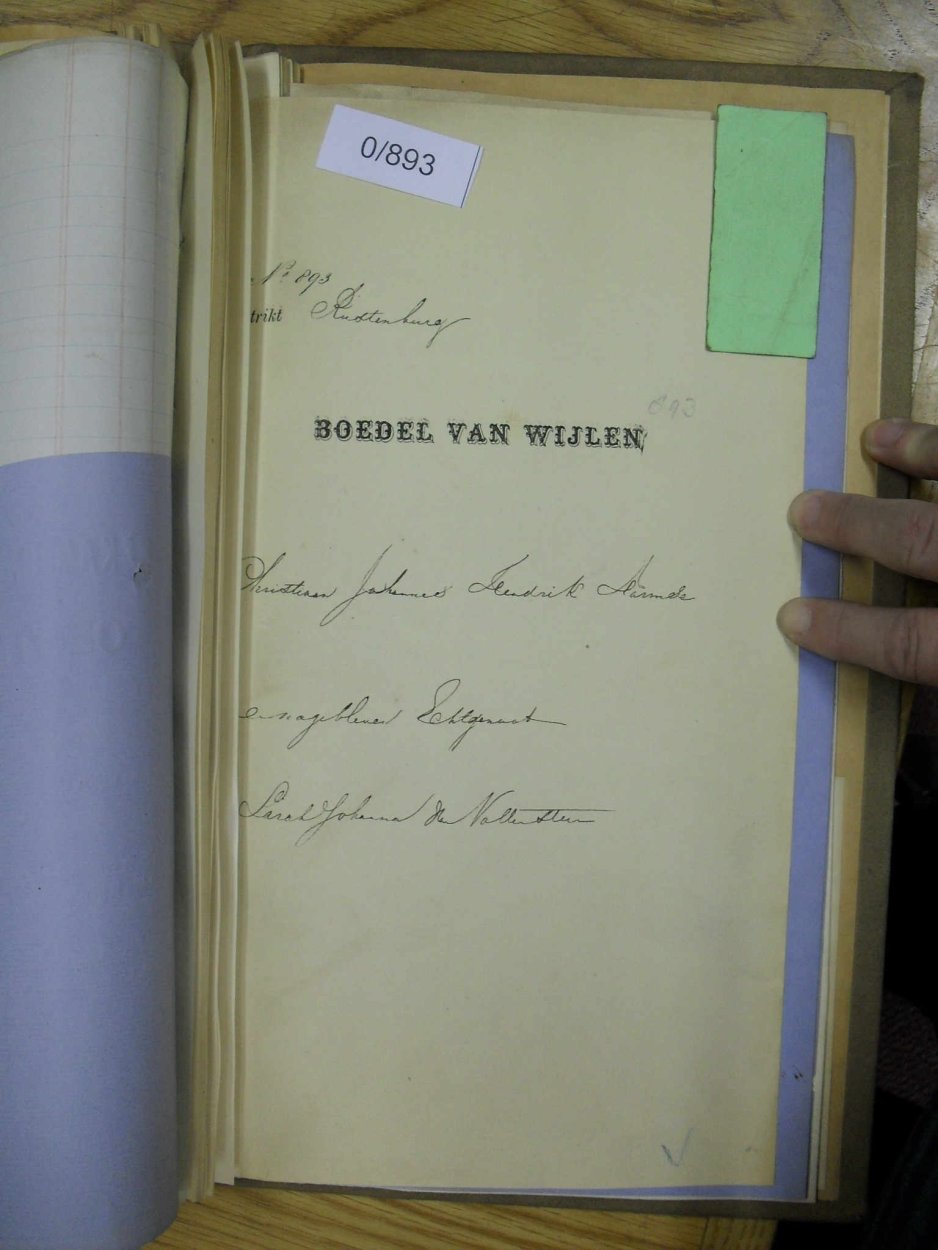 0/893
No 893
trikt Rustenburg
893
BOEDEL VAN WIJLEN
Christiaan Johannes Hendrik Harmse
en nagebleven Echtgenoot
Sarah Johanna